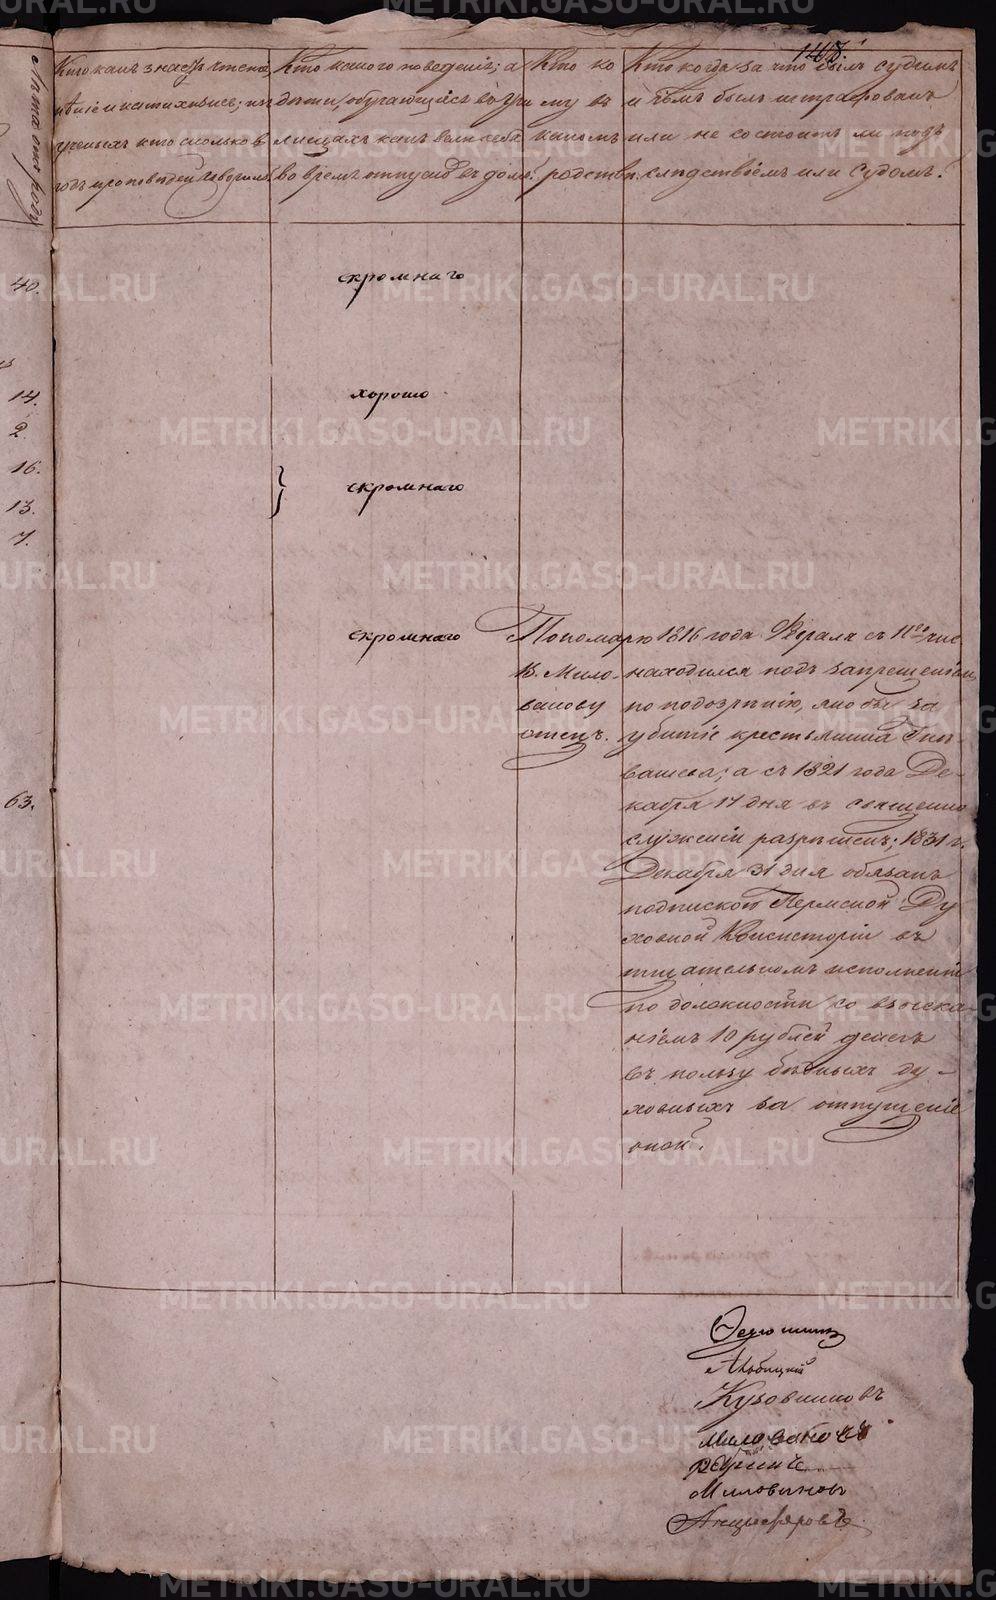 148.
Кто какъ знаетъ чтеніе,
пѣніе и катихизисъ; изъ
ученыхъ кто сколько въ
годъ проповѣдей говорилъ.
Кто какого поведенія; а
дѣти, обучающіяся въ Учи
лищахъ какъ вели себя
во время отпуска въ домъ.
Кто ко
му въ
какомъ
родствѣ.
Кто когда за что былъ судимъ
и чѣмъ былъ штрафованъ
или не состоитъ ли подъ
слѣдствіемъ или судомъ.
Лѣта отъ роду
40.
скромнаго
14.
хорошо
2.
16.
скромнаго
13.
7.
скромнаго
Пономарю
В. Мило-
ванову
отецъ.
1816 года Февраля съ 11го чис
находился подъ запрещеніем
по подозрѣнію, яко бы за
убитіе крестьянина
а съ 1821 года Де-
кабря 17 дня въ священно
служеніи разрѣшенъ; 1831 г.
Декабря 31 дня обязанъ
подпиской Пермской Ду
ховной Консисторіи въ
тщательномъ исполненіи
по должности со взыска-
ніемъ 10 рублей денегъ
въ пользу бѣдныхъ ду-
ховныхъ за отпущеніе
оной.
63.
Кузовниковъ
Миловановъ
Миловановъ
Анциферовъ
METRIKI.GASO-URAL.RU